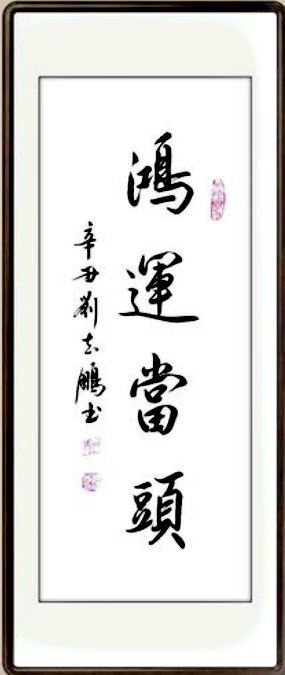 鴻運當頭
辛丑劉志鵬書